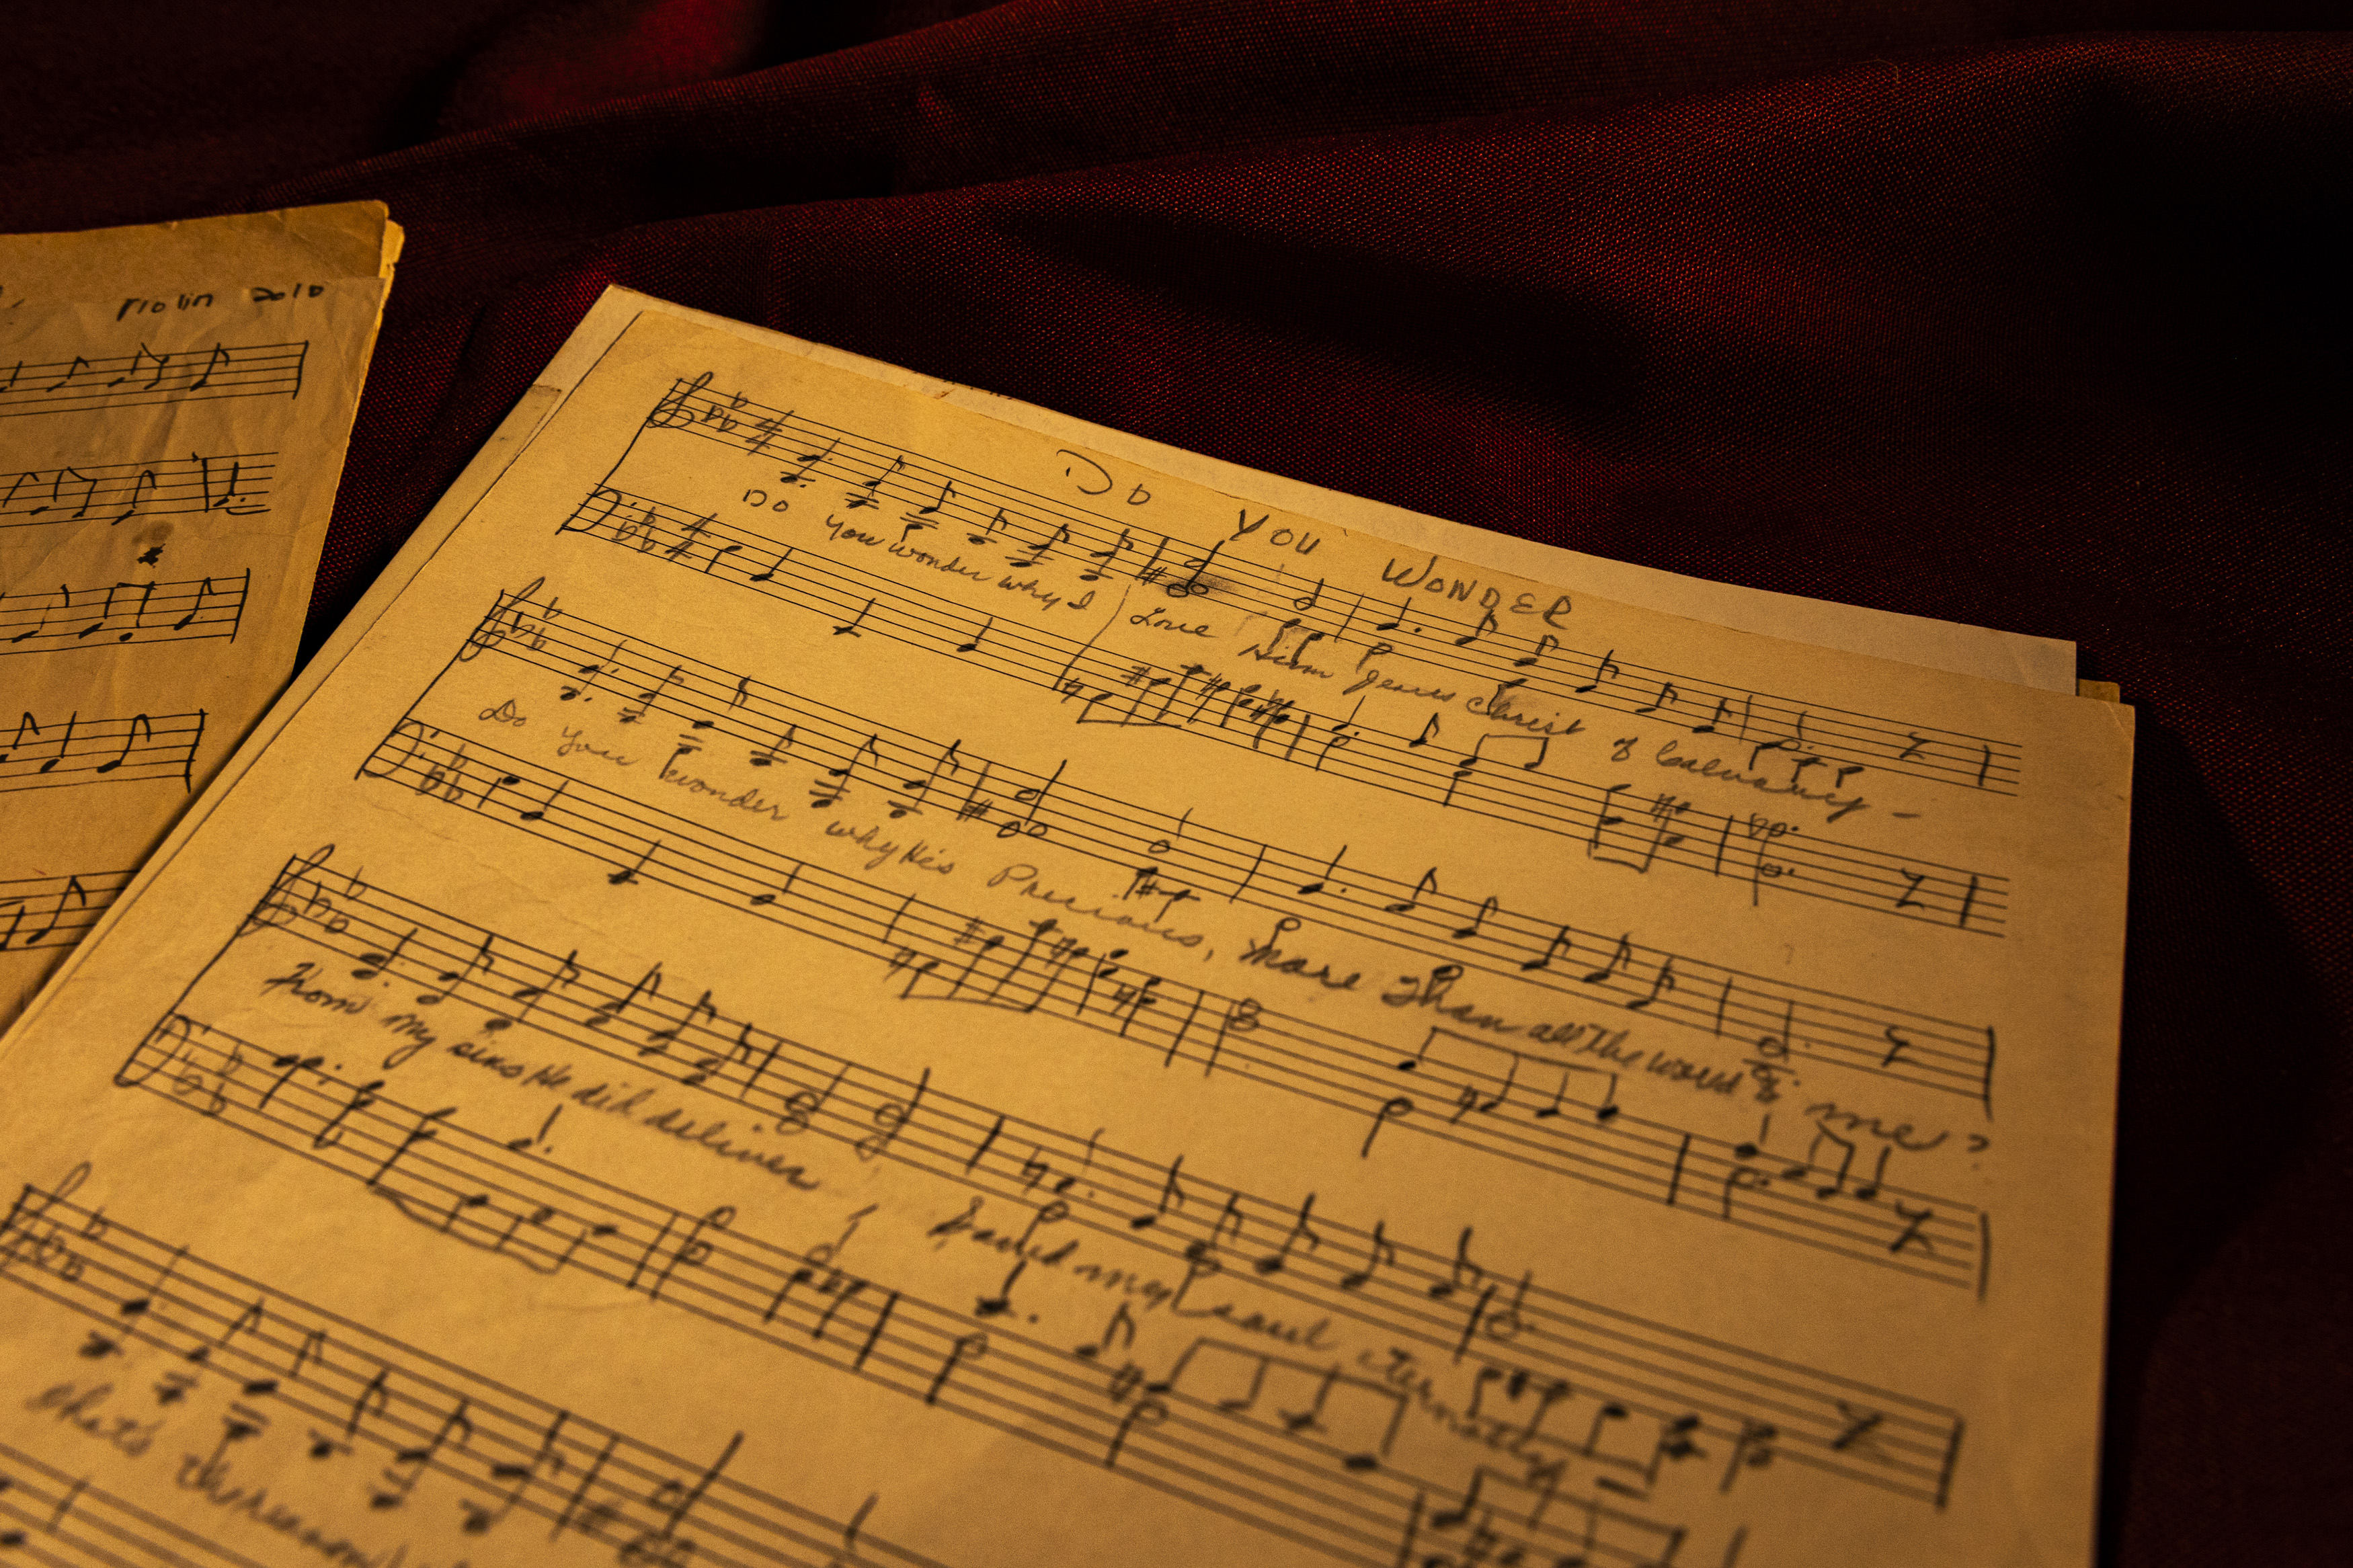 Violin 2010
Do You Wonder
4 4
Do you wonder why I Love Him Jesus Christ of Calvary -
4 4
Do you wonder why He's Precious, More Than all the world to me?
From my sins He did deliver, Saved my soul eternally
that's the reason